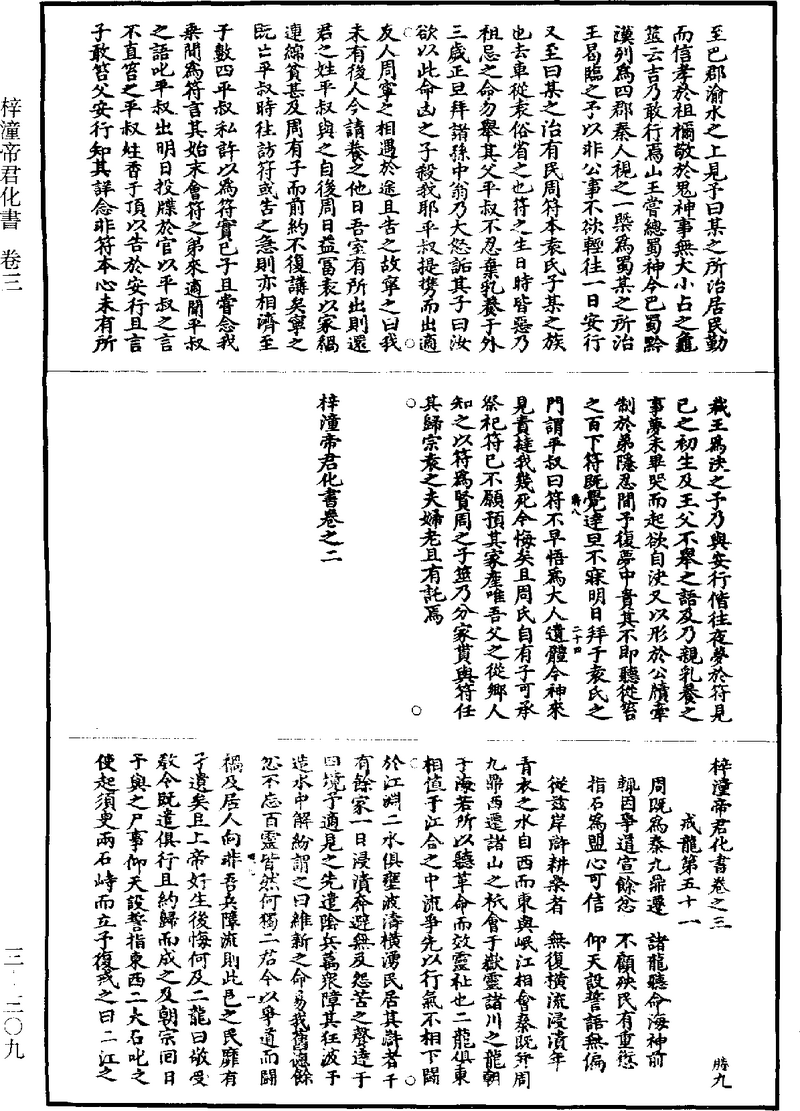 至巴郡渝水之上見予曰某之所治居民勤
而信孝於祖禰敬於鬼神事無大小占之龜
筮云吉乃敢行焉山王嘗總蜀神今巴蜀黔
漢列為四郡秦人視之一槩為蜀某之所治
王曷臨之予以非公事不欲輕往一日安行
又至曰某之治有民周符本袁氏子某之族
也去車從袁俗省之也符之生日時皆惡乃
祖忌之命勿舉其父平叔不忍棄乳養于外
三歲正旦拜諸孫中翁乃大怒詬其子曰汝
欲以此命凶之子殺我耶平叔提携而出適
友人周寧之相遇於途且告之故寧之曰我
未有後人今請養之他日吾室有所出則還
君之姓平叔與之自後周日益冨袁以家禍
連綿貧甚及周有子而前約不復講矣寧之
既亡平叔時往訪符或告之急則亦相濟至
于數四平叔私許以為符實己子且嘗念我
乘間為符言其始末會符之弟來適聞平叔
之語叱平叔出明日投牒於官以平叔之言
不直笞之平叔炷香于頂以告於安行且言
子敢笞父安行知其詳念非符本心未有所
裁王為決之予乃與安行偕往夜夢於符見
己之初生及王父不舉之語及乃親乳養之
事夢未畢哭而起欲自決又以形於公牘牽
制於弟隱忍間予復夢中責其不即聽從笞
之百下符既覺達旦不寐明日拜于袁氏之
門謂平叔曰符不早悟為大人遺體今神來
見責撻我幾死今悔矣且周氏自有子可承
祭祀符已不願預其家產唯吾父之從鄉人
知之以符為賢周之子莚乃分家貲與符任
其歸宗袁之夫婦老且有託焉
梓潼帝君化書卷之二
勝八
二十四
梓潼帝君化書卷之三
勝九
戒龍第五十一
周既為秦九鼎遷 諸龍聽命海神前
輒因爭道宣餘忿 不顧殃民有重愆
指石為盟心可信 仰天設誓語無偏
從茲岸滸耕桑者 無復橫流浸漬年
青衣之水自西而東與岷江相會秦既并周
九鼎西遷諸山之祇會于嶽靈諸川之龍朝
于海若所以聽革命而效靈祉也二龍俱東
相值于江合之中流爭先以行氣不相下鬪
於江淵二水俱壅波濤橫湧民居其滸者千
有餘家一日浸漬奔避無及怨苦之聲達于
四境予適見之先遣陰兵萬衆障其狂波予
造水中解紛謂之曰維新之命易我舊德餘
忿不忘百靈皆然何獨二君今以爭道而鬪
禍及居人向非吾兵障流則此邑之民靡有
孑遺矣且上帝好生後悔何及二龍曰敬受
教令既遣俱行且約歸而成之及朝宗回日
予與之尸事仰天設誓指東西二大石叱之
使起須臾兩石峙而立予復戒之曰二江之
梓潼帝君化書 卷三
三·三〇九